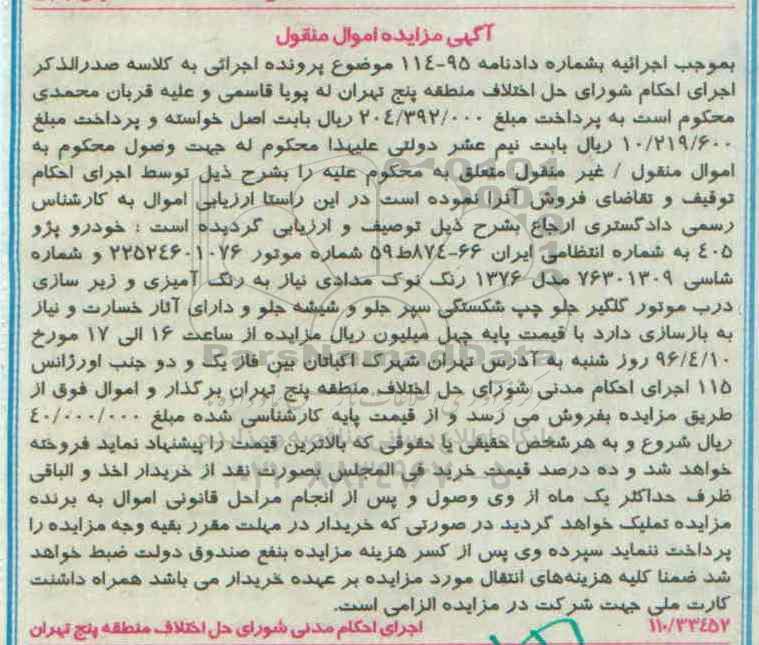 آگهی مزایده اموال منقول
بموجب اجرائیه بشماره دادنامه ۹۵-۱۱۴ موضوع پرونده اجرائی به کلاسه صدرالذکر
اجرای احکام شورای حل اختلاف منطقه پنج تهران له پویا قاسمی و علیه قربان محمدی
محکوم است به پرداخت مبلغ ۲۰۴/۳۹۲/۰۰۰ ریال بابت اصل خواسته و پرداخت مبلغ
۱۰/۲۱۹/۶۰۰ ریال بابت نیم عشر دولتی علیهذا محکوم له جهت وصول محکوم به
اموال منقول / غیر منقول متعلق به محکوم علیه را بشرح ذیل توسط اجرای احکام
توقیف و تقاضای فروش آنرا نموده است در این راستا ارزیابی اموال به کارشناس
رسمی دادگستری ارجاع بشرح ذیل توصیف و ارزیابی گردیده است : خودرو پژو
۴۰۵ به شماره انتظامی ایران ۶۶-۸۷۴ط۵۹ شماره موتور ۲۲۵۲۴۶۰۱۰۷۶ و شماره
شاسی ۷۶۳۰۱۳۰۹ مدل ۱۳۷۶ رنگ نوک مدادی نیاز به رنگ آمیزی و زیر سازی
درب موتور گلگیر جلو چپ شکستگی سپر جلو و شیشه جلو و دارای آثار خسارت و نیاز
به بازسازی دارد با قیمت پایه چهل میلیون ریال مزایده از ساعت ۱۶ الی ۱۷ مورخ
۹۶/۴/۱۰ روز شنبه به آدرس تهران شهرک اکباتان بین فاز یک و دو جنب اورژانس
۱۱۵ اجرای احکام مدنی شورای حل اختلاف منطقه پنج تهران برگذار و اموال فوق از
طریق مزایده بفروش می رسد و از قیمت پایه کارشناسی شده مبلغ ۴۰/۰۰۰/۰۰۰
ریال شروع و به هرشخص حقیقی یا حقوقی که بالاترین قیمت را پیشنهاد نماید فروخته
خواهد شد و ده درصد قیمت خرید فی المجلس بصورت نقد از خریدار اخذ و الباقی
ظرف حداکثر یک ماه از وی وصول و پس از انجام مراحل قانونی اموال به برنده
مزایده تملیک خواهد گردید در صورتی که خریدار در مهلت مقرر بقیه وجه مزایده را
پرداخت ننماید سپرده وی پس از کسر هزینه مزایده بنفع صندوق دولت ضبط خواهد
شد ضمنا کلیه هزینه‌های انتقال مورد مزایده بر عهده خریدار می باشد همراه داشتن
کارت ملی جهت شرکت در مزایده الزامی است.
۱۱۰/۳۳۴۵۷ اجرای احکام مدنی شورای حل اختلاف منطقه پنج تهران